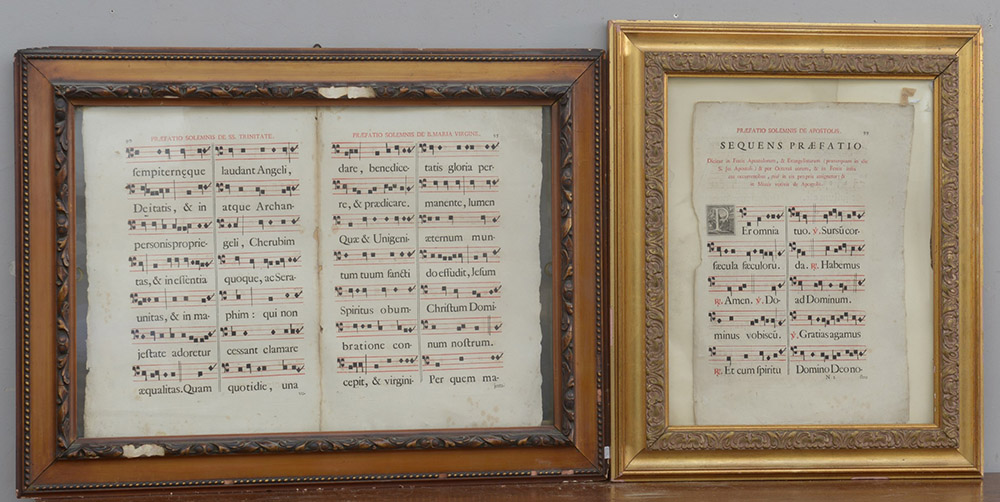 PRÆFATIO SOLEMNIS DE SS. TRINITATE.
ſempiternęque
Deitatis, & in
personis proprie-
tas, & in eſſentia
unitas, & in ma-
jeſtate adoretur
æqualitas. Quam
laudant Angeli,
atque Archan-
geli, Cherubim
quoque, ac Sera-
phim: qui non
ceſſant clamare
quotidie, una
PRÆFATIO SOLEMNIS DE B. MARIA VIRGINE.
dare, benedice-
re, & prædicare.
Quæ & Unigeni-
tum tuum ſancti
Spiritus obum-
bratione con-
cepit, & virgini-
tatis gloria per-
manente, lumen
æternum mun-
do effudit, Jeſum
Chriſtum Domi-
num noſtrum.
Per quem ma-
PRÆFATIO SOLEMNIS DE APOSTOLIS.
SEQUENS PRÆFATIO
in Miſsis votivis de Apoſtolis.
PEr omnia
ſæcula ſæculorū.
℟. Amen. ℣. Do-
minus vobiſcū.
℟. Et cum ſpiritu
tuo. ℣. Surſū cor-
da. ℟. Habemus
ad Dominum.
℣. Gratias agamus
Domino Deo no-